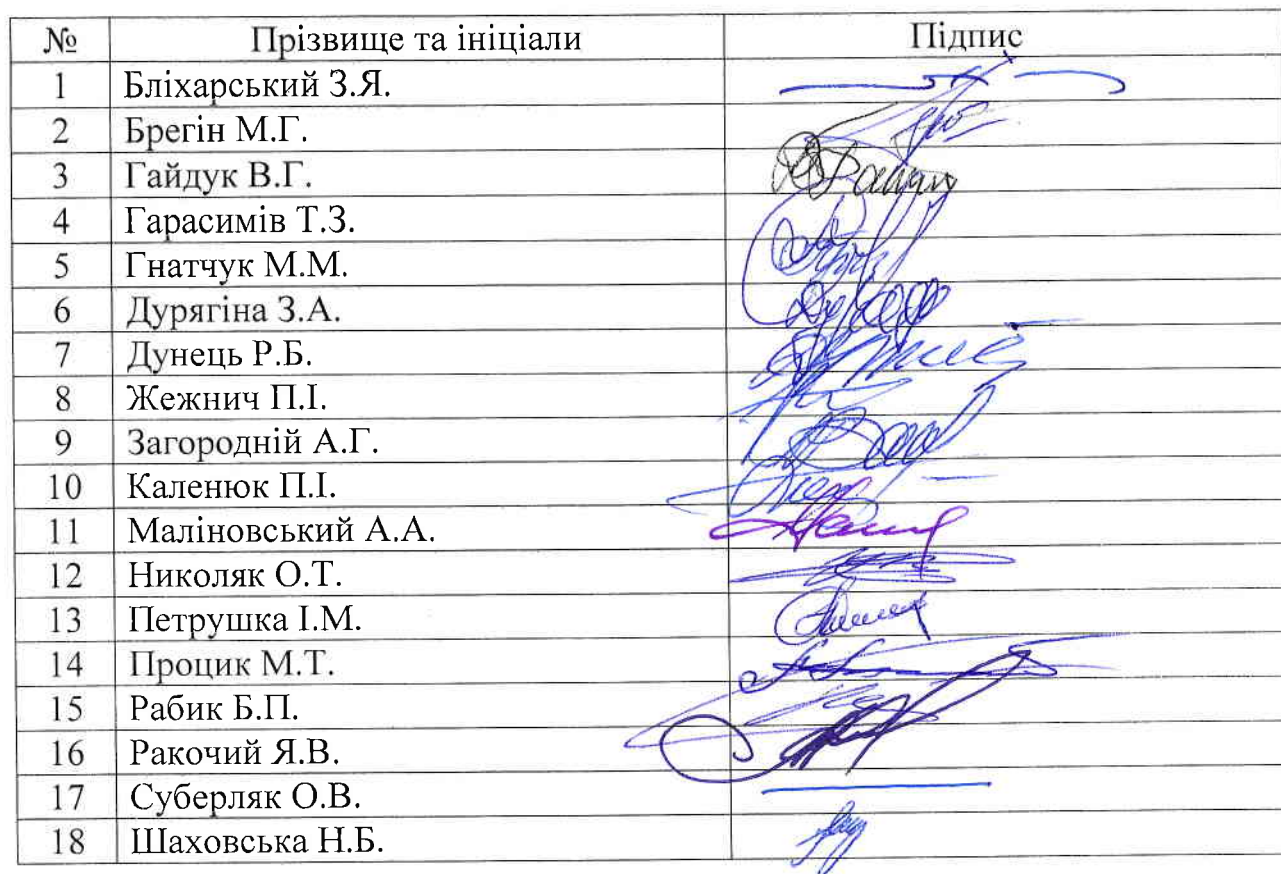 № Прізвище та ініціали Підпис
1 Бліхарський З.Я.
2 Брегін М.Г.
3 Гайдук В.Г.
4 Гарасимів Т.З.
5 Гнатчук М.М.
6 Дурягіна З.А.
7 Дунець Р.Б.
8 Жежнич П.І.
9 Загородній А.Г.
10 Каленюк П.І.
11 Маліновський А.А.
12 Николяк О.Т.
13 Петрушка І.М.
14 Процик М.Т.
15 Рабик Б.П.
16 Ракочий Я.В.
17 Суберляк О.В.
18 Шаховська Н.Б.